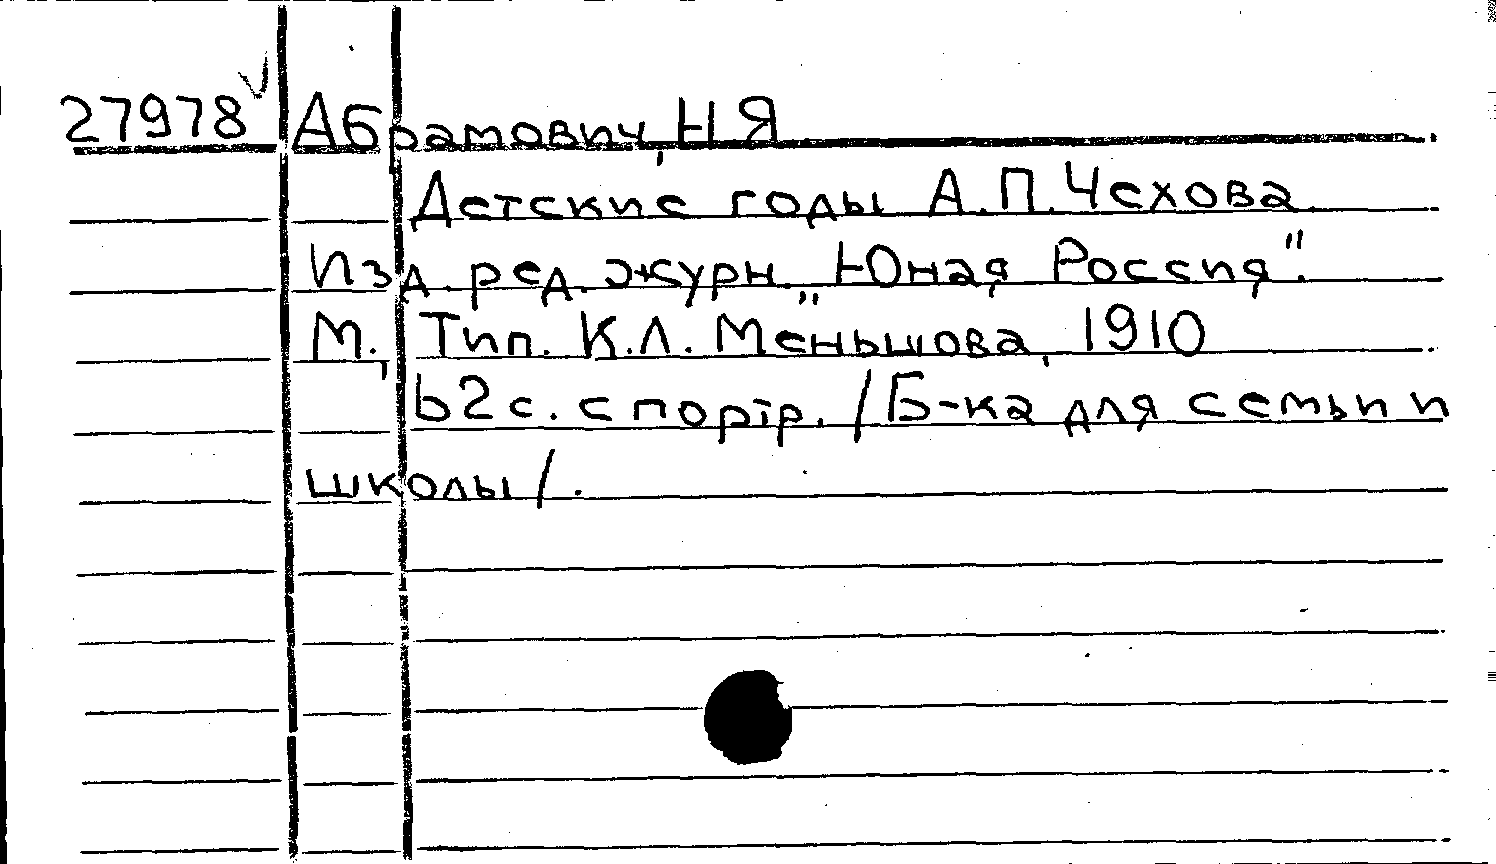 27978 Абрамович, Н Я
Детские годы А.П.Чехова.
Изд. ред. журн. „Юная Россия".
М., Тип. К.Л. Меньшова, 1910
62с. с портр. /Б-ка для семьи и
школы/.